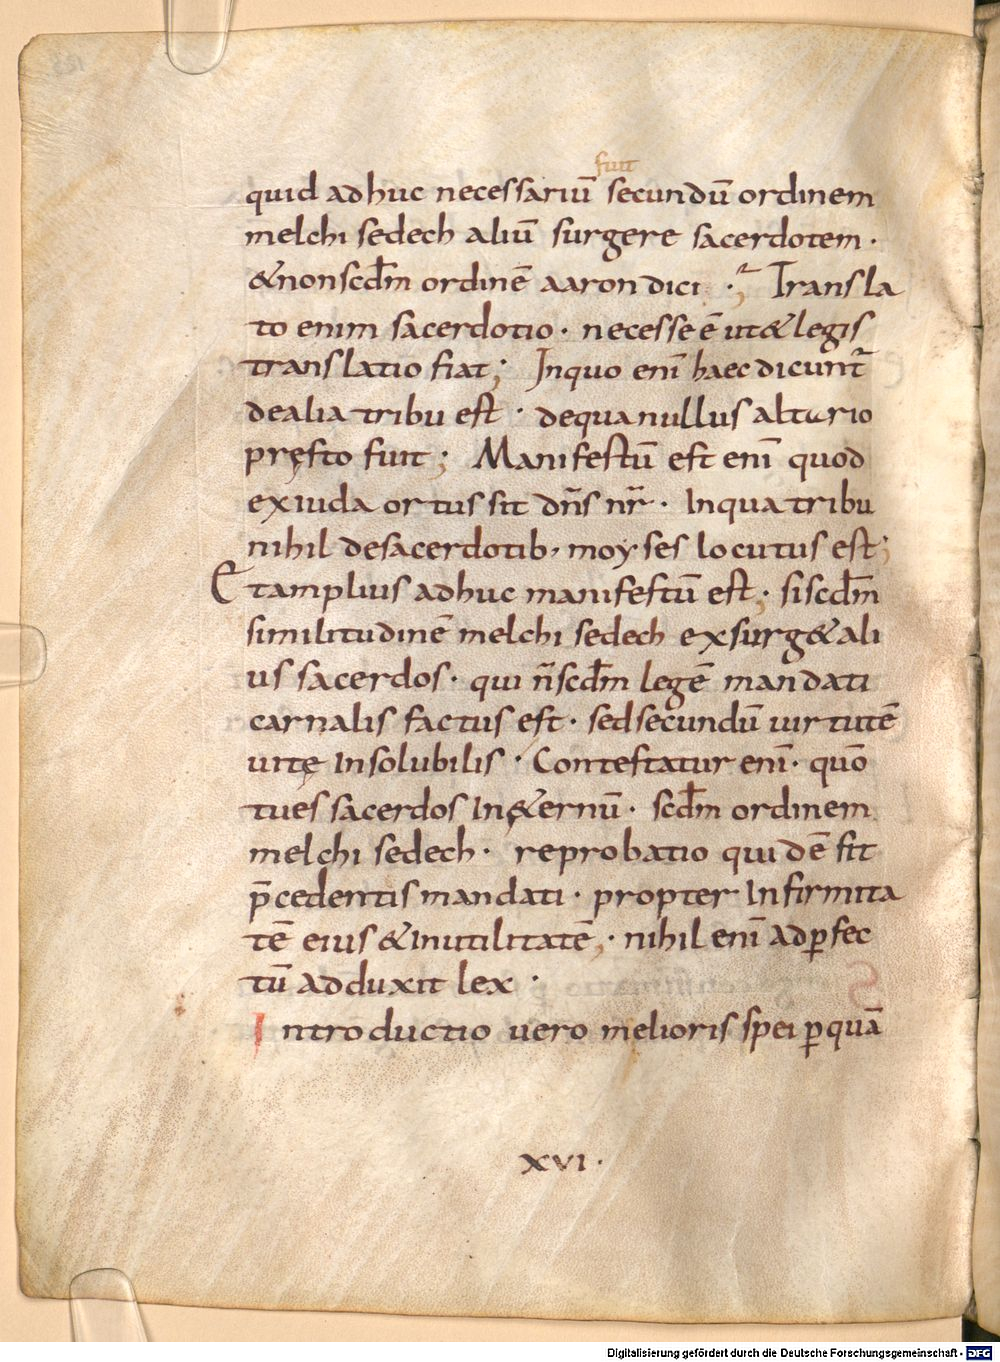 fuit
quid adhuc necessariū secundū ordinem
melchisedech aliū surgere sacerdotem ·
& non scdm̄ ordinē aaron dici ·; Transla
to enim sacerdotio · necesse ē ut & legis
translatio fiat; In quo eni̅ haec dicunt̅
de alia tribu est · de qua nullus alturio
pręsto fuit; Manifestū est eni̅ quod
ex iuda ortus sit dn̄s nr̄ · In qua tribu
nihil de sacerdotib, moyses locutus est;
Et amplius adhuc manifestū est; si scdm̄
similitudinē melchisedech exsurg& ali
us sacerdos · qui n̄ scdm̄ legē mandati
carnalis factus est · sed secundū uirtutē
uitę Insolubilis · Contestatur eni̅ · quō
tu es sacerdos In ę&ernū · scdm̄ ordinem
melchisedech · reprobatio quidē fit
p̄cedentis mandati · propter Infirmita
tē eius & Inutilitatē, · nihil eni̅ ad ꝑfec
tū adduxit lex ·
Introductio vero melioris spei ꝑ quā
XVI ·
Digitalisierung gefördert durch die Deutsche Forschungsgemeinschaft - DFG